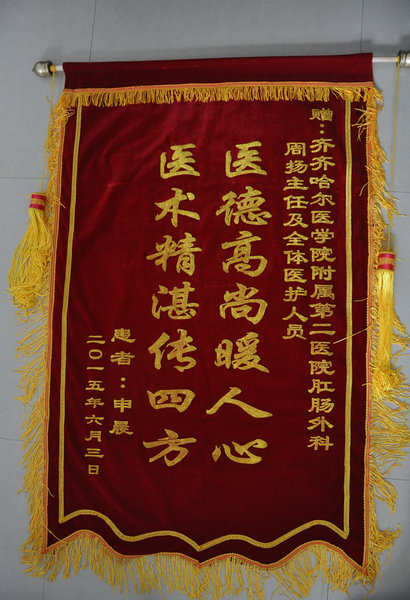 赠：齐齐哈尔医学院附属第二医院肛肠外科
周扬主任及全体医护人员
医德高尚暖人心
医术精湛传四方
患者：申晨
二〇一五年六月三日